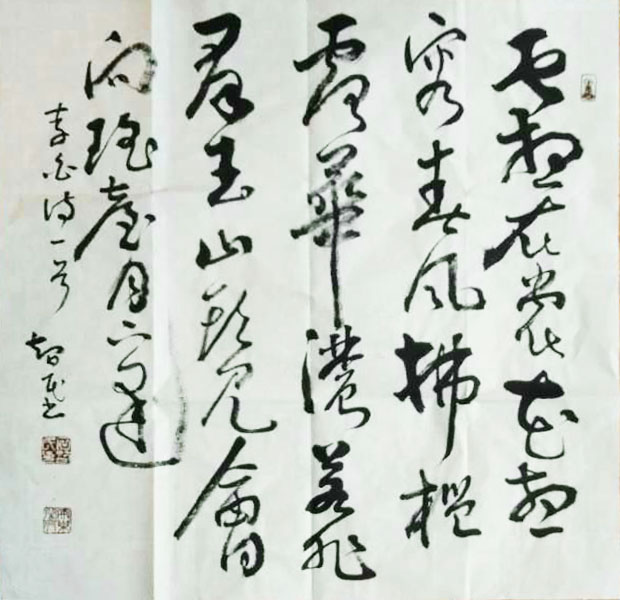 云想衣裳花想
容春風拂檻
露華濃若非
羣玉山頭見會
向瑶臺月下逢
李白诗一首 智民书